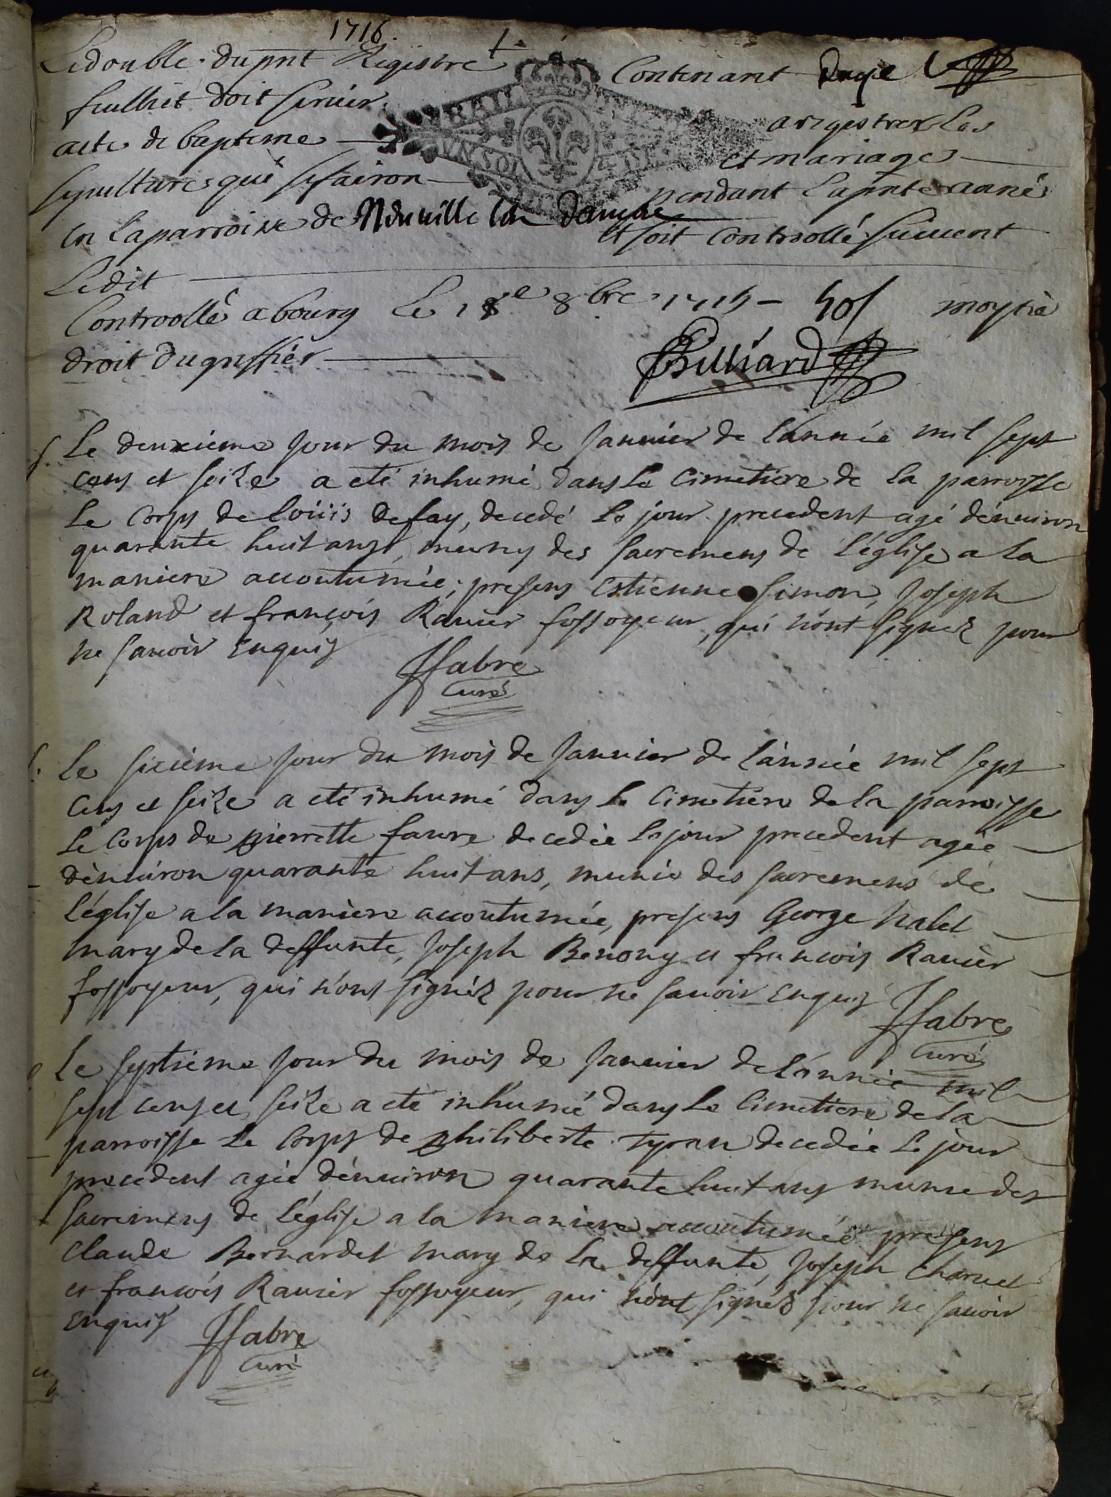 1716.
Le double du pnt Registre Contenant
feuillet doit servir a regestrer les
acte de bapteme et mariages
sepultures qui se fairon pendant la pnte année
en la parroisse de Neuville les dames et soit controollé suiuent
Ledit
Controollé a bourg le 18e 8bre 1715 – moytié
droit du greffier Billiard
Le deuxieme jour du mois de Januier de l'année mil sept
cens et seize a eté inhumé dans le cimetiere de la parroisse
le corps de loüis defay, decedé le jour precedent agé d'enuiron
quarante huit ans, muny des sacremens de l'église a la
maniere accoutumée; presens Estienne Simon, Joseph
Roland et françois Rauier fossoyeur, qui n'ont signez pour
ne sauoir Enquis
Jfabre
curé
Le sixiéme jour du mois de Januier de l'année mil sept
cens et seize a eté inhumé dans le cimetiere de la parroisse
le corps de pierrette faure decedée le jour precedent agée
d'enuiron quarante huit ans, munie des sacremens de
l'église a la maniere accoutumée, presens George Nalet
mary de la deffunte, Joseph Benony et francois Rauier
fossoyeur, qui n'ont signéz pour ne sauoir Enquis
Jfabre
curé
Le septiéme jour du mois de Januier de l'année mil
sept cens et seize a eté inhumé dans le cimetiere de la
parroisse le corps de philiberte Tyran decedée le jour
precedent agée d'enuiron quarante huit ans munie des
sacremens de l'église a la maniere accoutumée presens
Claude Bernardet mary de la deffunte, Joseph Charuet
et francois Rauier fossoyeur, qui n'ont signéz pour ne sauoir
Enquis
Jfabre
curé